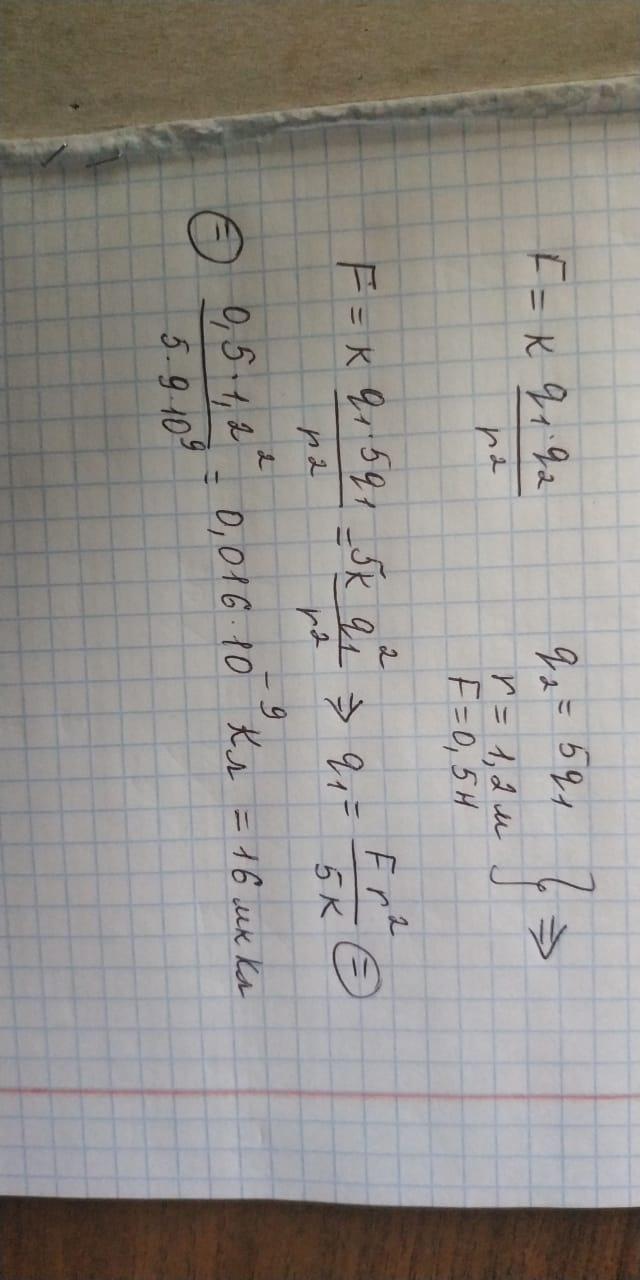 F = к q₁·q₂/r² q₂ = 5q₁ } ⇒
r = 1,2 м
F = 0,5 н
F = к q₁·5q₁/r² = 5к q₁²/r² ⇒ q₁ = Fr²/5к =
= 0,5·1,2²/5·9·10⁹ = 0,016·10⁻⁹ Кл = 16 мк Кл